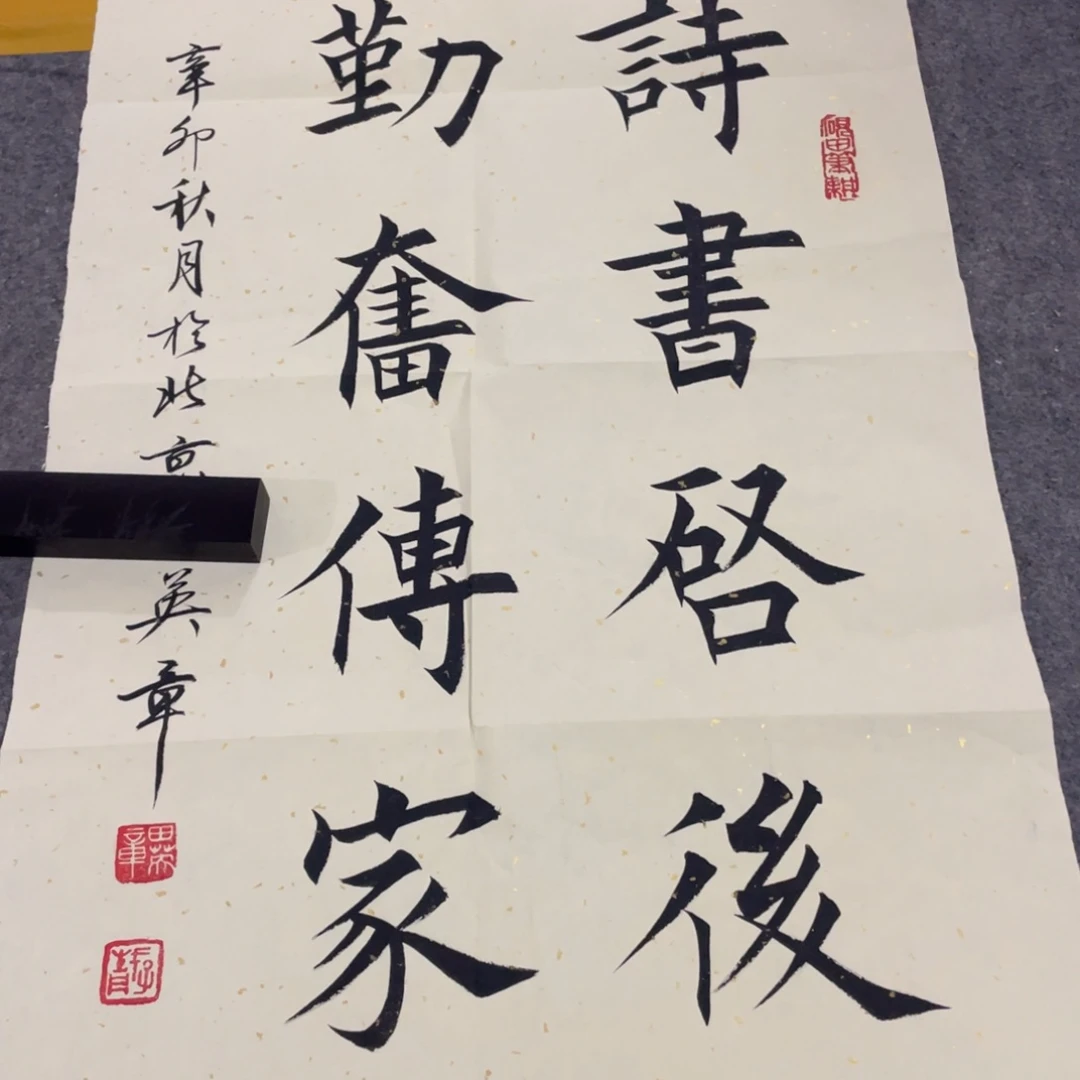 詩書啓後
勤奮傳家
辛卯秋月於北京
英章
田英章